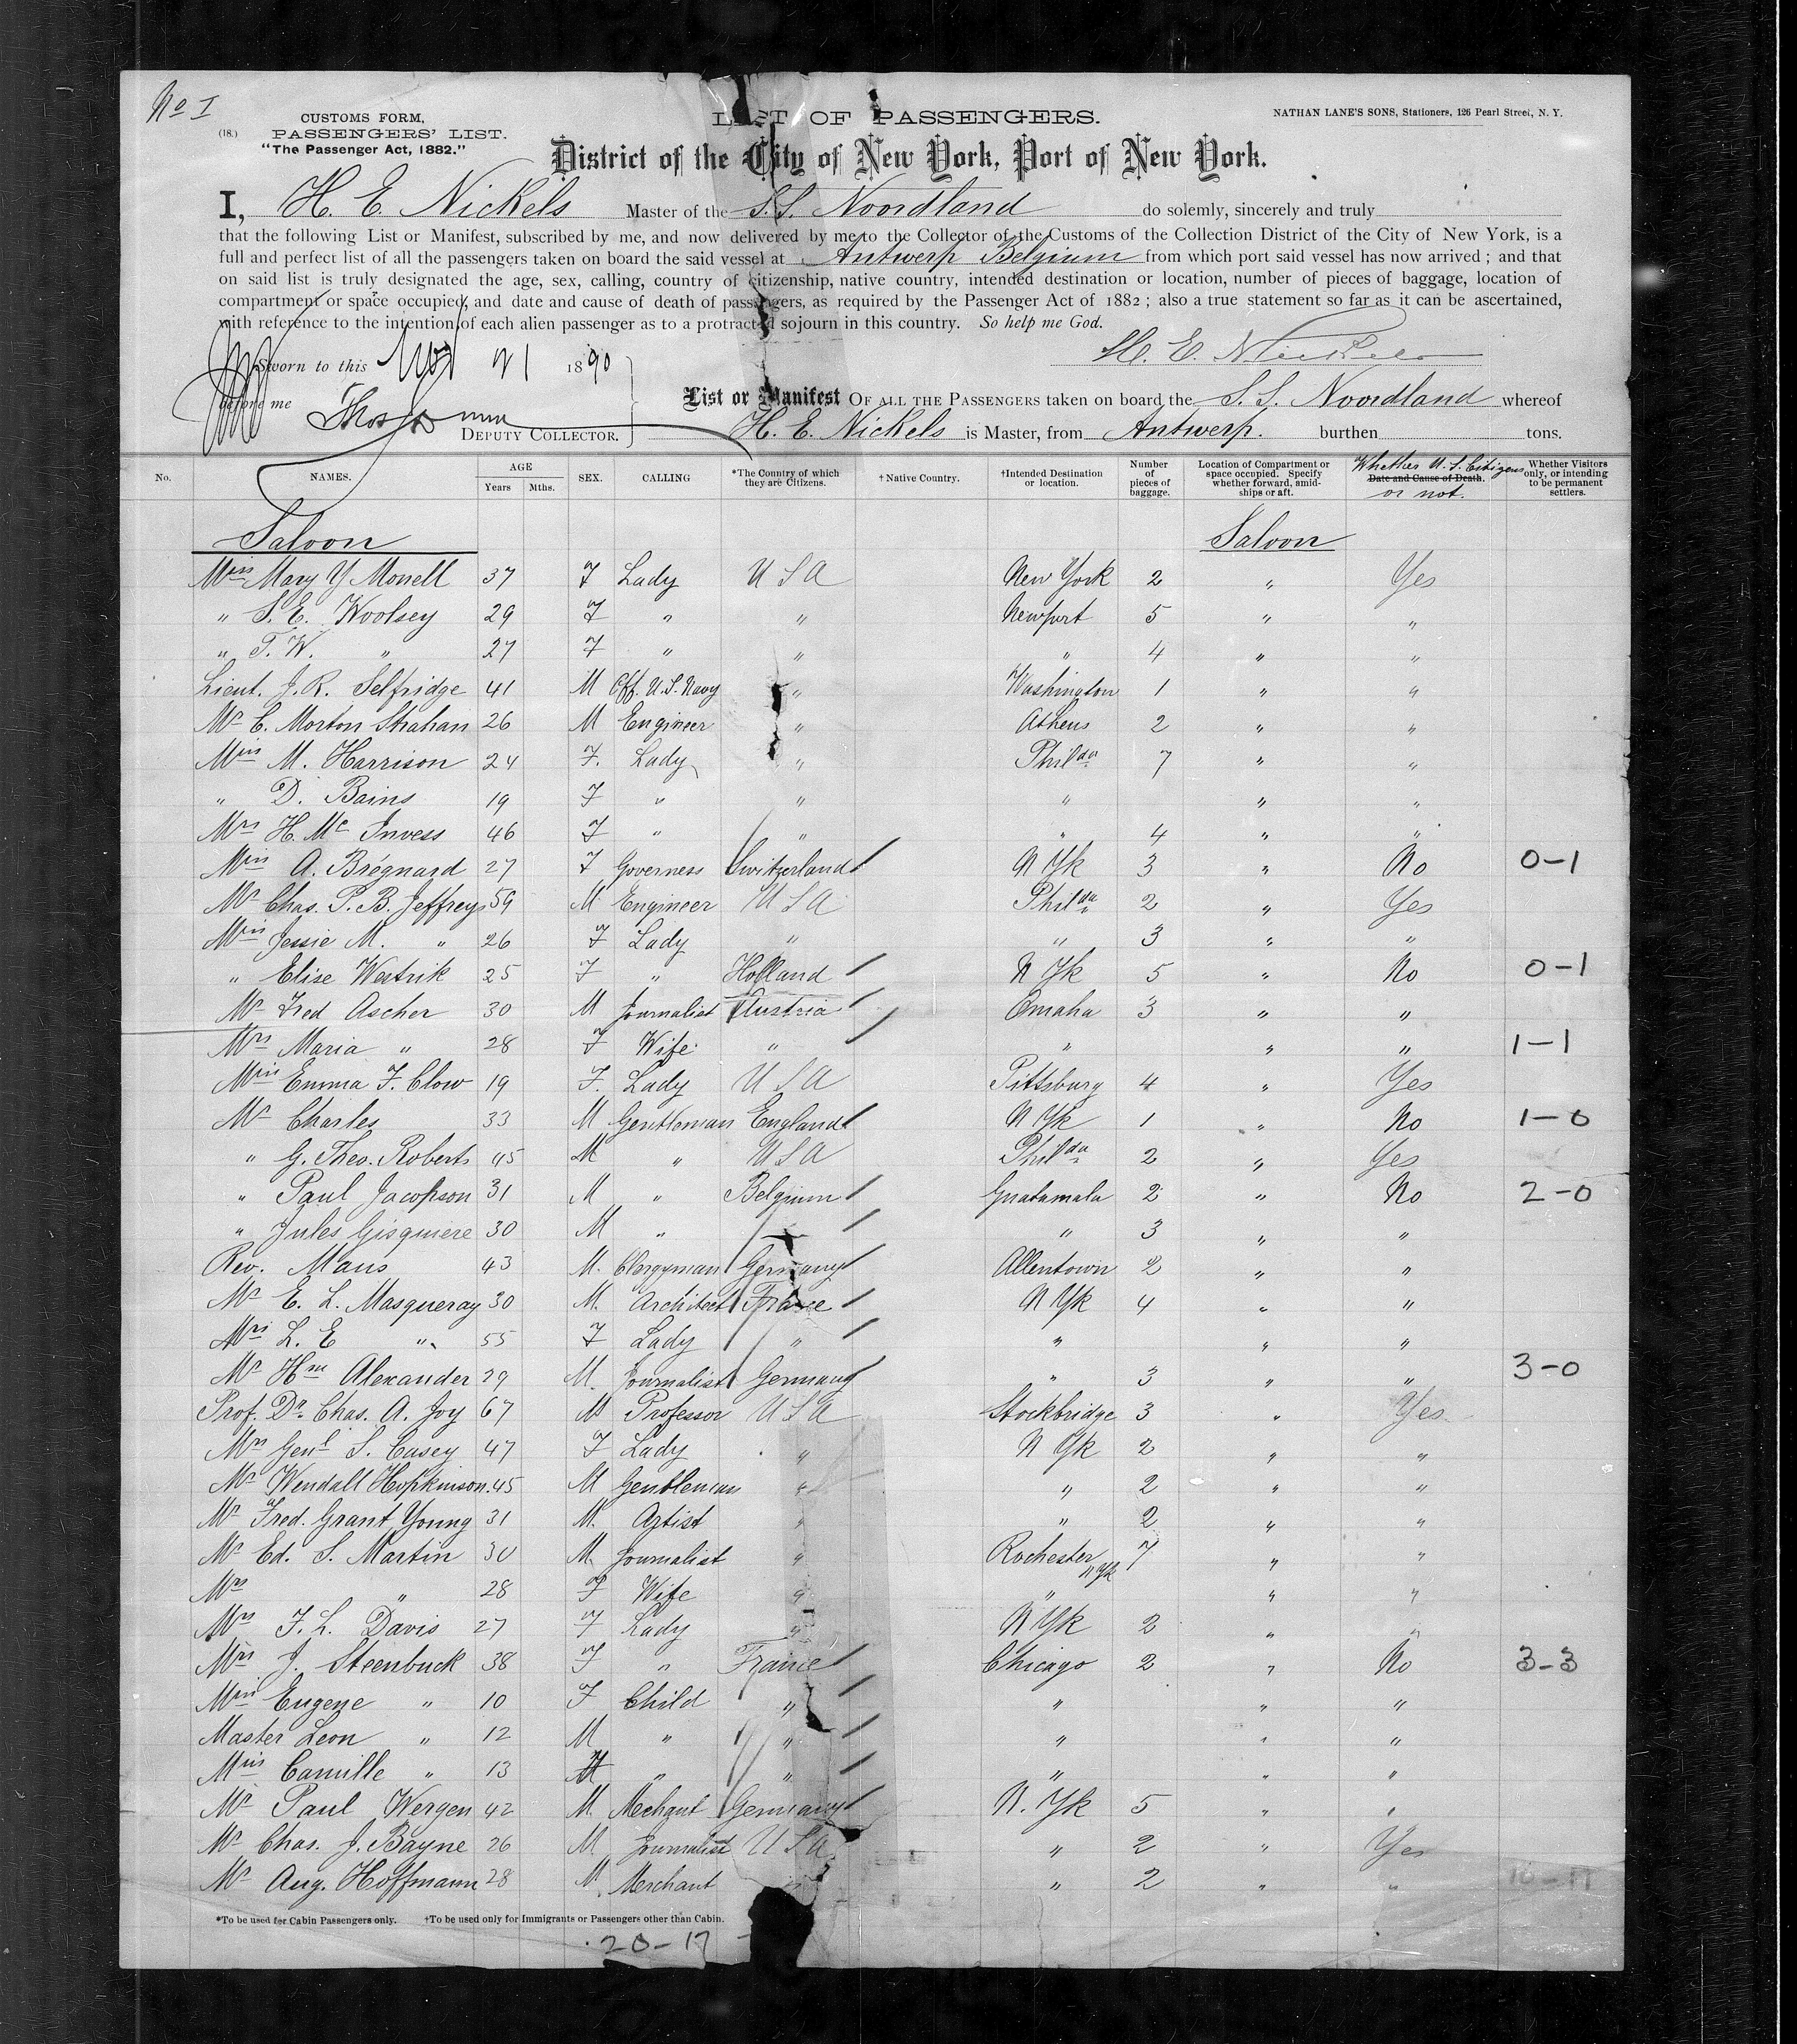 No I
CUSTOMS FORM,
(18.) PASSENGERS' LIST.
"The Passenger Act, 1882."
LIST OF PASSENGERS.
NATHAN LANE'S SONS, Stationers, 126 Pearl Street, N. Y.
District of the City of New York, Port of New York.
I, H. E. Nickels Master of the S.S. Noordland do solemly, sincerely and truly
that the following List or Manifest, subscribed by me, and now delivered by me to the Collector of the Customs of the Collection District of the City of New York, is a
full and perfect list of all the passengers taken on board the said vessel at Antwerp Belgium from which port said vessel has now arrived ; and that
on said list is truly designated the age, sex, calling, country of citizenship, native country, intended destination or location, number of pieces of baggage, location of
compartment or space occupied, and date and cause of death of passengers, as required by the Passenger Act of 1882 ; also a true statement so far as it can be ascertained,
with reference to the intention of each alien passenger as to a protracted sojourn in this country. So help me God.
H. E. Nickels
Sworn to this Nov 21 1890
before me
DEPUTY COLLECTOR.
List or Manifest OF ALL THE PASSENGERS taken on board the S.S. Noordland whereof
H. E. Nickels is Master, from Antwerp. burthen tons.
No. NAMES. AGE Years Mths. SEX. CALLING *The Country of which they are Citizens. †Native Country. †Intended Destination or location. Number of pieces of baggage. Location of Compartment or space occupied. Specify whether forward, amidships or aft. Date and Cause of Death. Whether U.S. Citizens or not. Whether Visitors only, or intending to be permanent settlers.
Saloon Saloon
Miss Mary Y Monell 37 F Lady U S A New York 2 " Yes
" S. E. Woolsey 29 F " " Newport 5 " "
" T. W. " 27 F " " " 4 " "
Lieut. J. R. Selfridge 41 M Off. U.S. Navy " Washington 1 " "
Mr C. Morton Strahan 26 M Engineer " Athens 2 " "
Miss M. Harrison 24 F. Lady " Philda 7 " "
" D. Bains 19 F " " " " "
Mrs H. Mc Invess 46 F " " " 4 " "
Miss A. Brégnard 27 F Governess Switzerland N Yk 3 " No 0-1
Mr Chas. P. B. Jeffreys 59 M Engineer U S A Philda 2 " Yes
Miss Jessie M. " 26 F Lady " " 3 " "
" Elise Westrik 25 F " Holland N Yk 5 " No 0-1
Mr Fred Ascher 30 M Journalist Austria Omaha 3 " "
Mrs Maria " 28 F Wife " " " " 1-1
Miss Emma F. Clow 19 F. Lady U S A Pittsburg 4 " Yes
Mr Charles 33 M Gentleman England N Yk 1 " No 1-0
" G. Theo. Roberts 45 M " U S A Philda 2 " Yes
" Paul Jacobson 31 M " Belgium Guatamala 2 " No 2-0
" Jules Gisquiere 30 M " " 3 " "
Rev. Maus 43 M. Clergyman Germany Allentown 2 " "
Mr E. L. Masqueray 30 M. Architect France N Yk 4 " "
Mrs L. E " 55 F Lady " " " "
Mr Hm Alexander 29 M. Journalist Germany " 3 " " 3-0
Prof. Dr. Chas. A. Joy 67 M Professor U S A Stockbridge 3 " Yes
Mrs Genl S. Casey 47 F Lady " N Yk 2 " "
Mr Wendall Hopkinson. 45 M Gentleman " " 2 " "
Mr Fred. Grant Young 31 M. Artist " " 2 " "
Mr Ed. S. Martin 30 M. Journalist " Rochester N Yk 7 " "
Mrs " 28 F Wife " " " "
Mrs F. L. Davis 27 F Lady " N Yk 2 " "
Mrs J. Steenbuck 38 F " France Chicago 2 " No 3-3
Miss Eugene " 10 F Child " " " "
Master Leon " 12 M " " " " "
Miss Camille " 13 " " " " "
Mr Paul Wergen 42 M. Mechant Germany N. Yk 5 " "
Mr Chas. J. Bayne 26 M Journalist U S A " 2 " Yes
Mr Aug. Hoffmann 28 M. Merchant " " 2 " "
10-17
*To be used for Cabin Passengers only. †To be used only for Immigrants or Passengers other than Cabin.
20-17